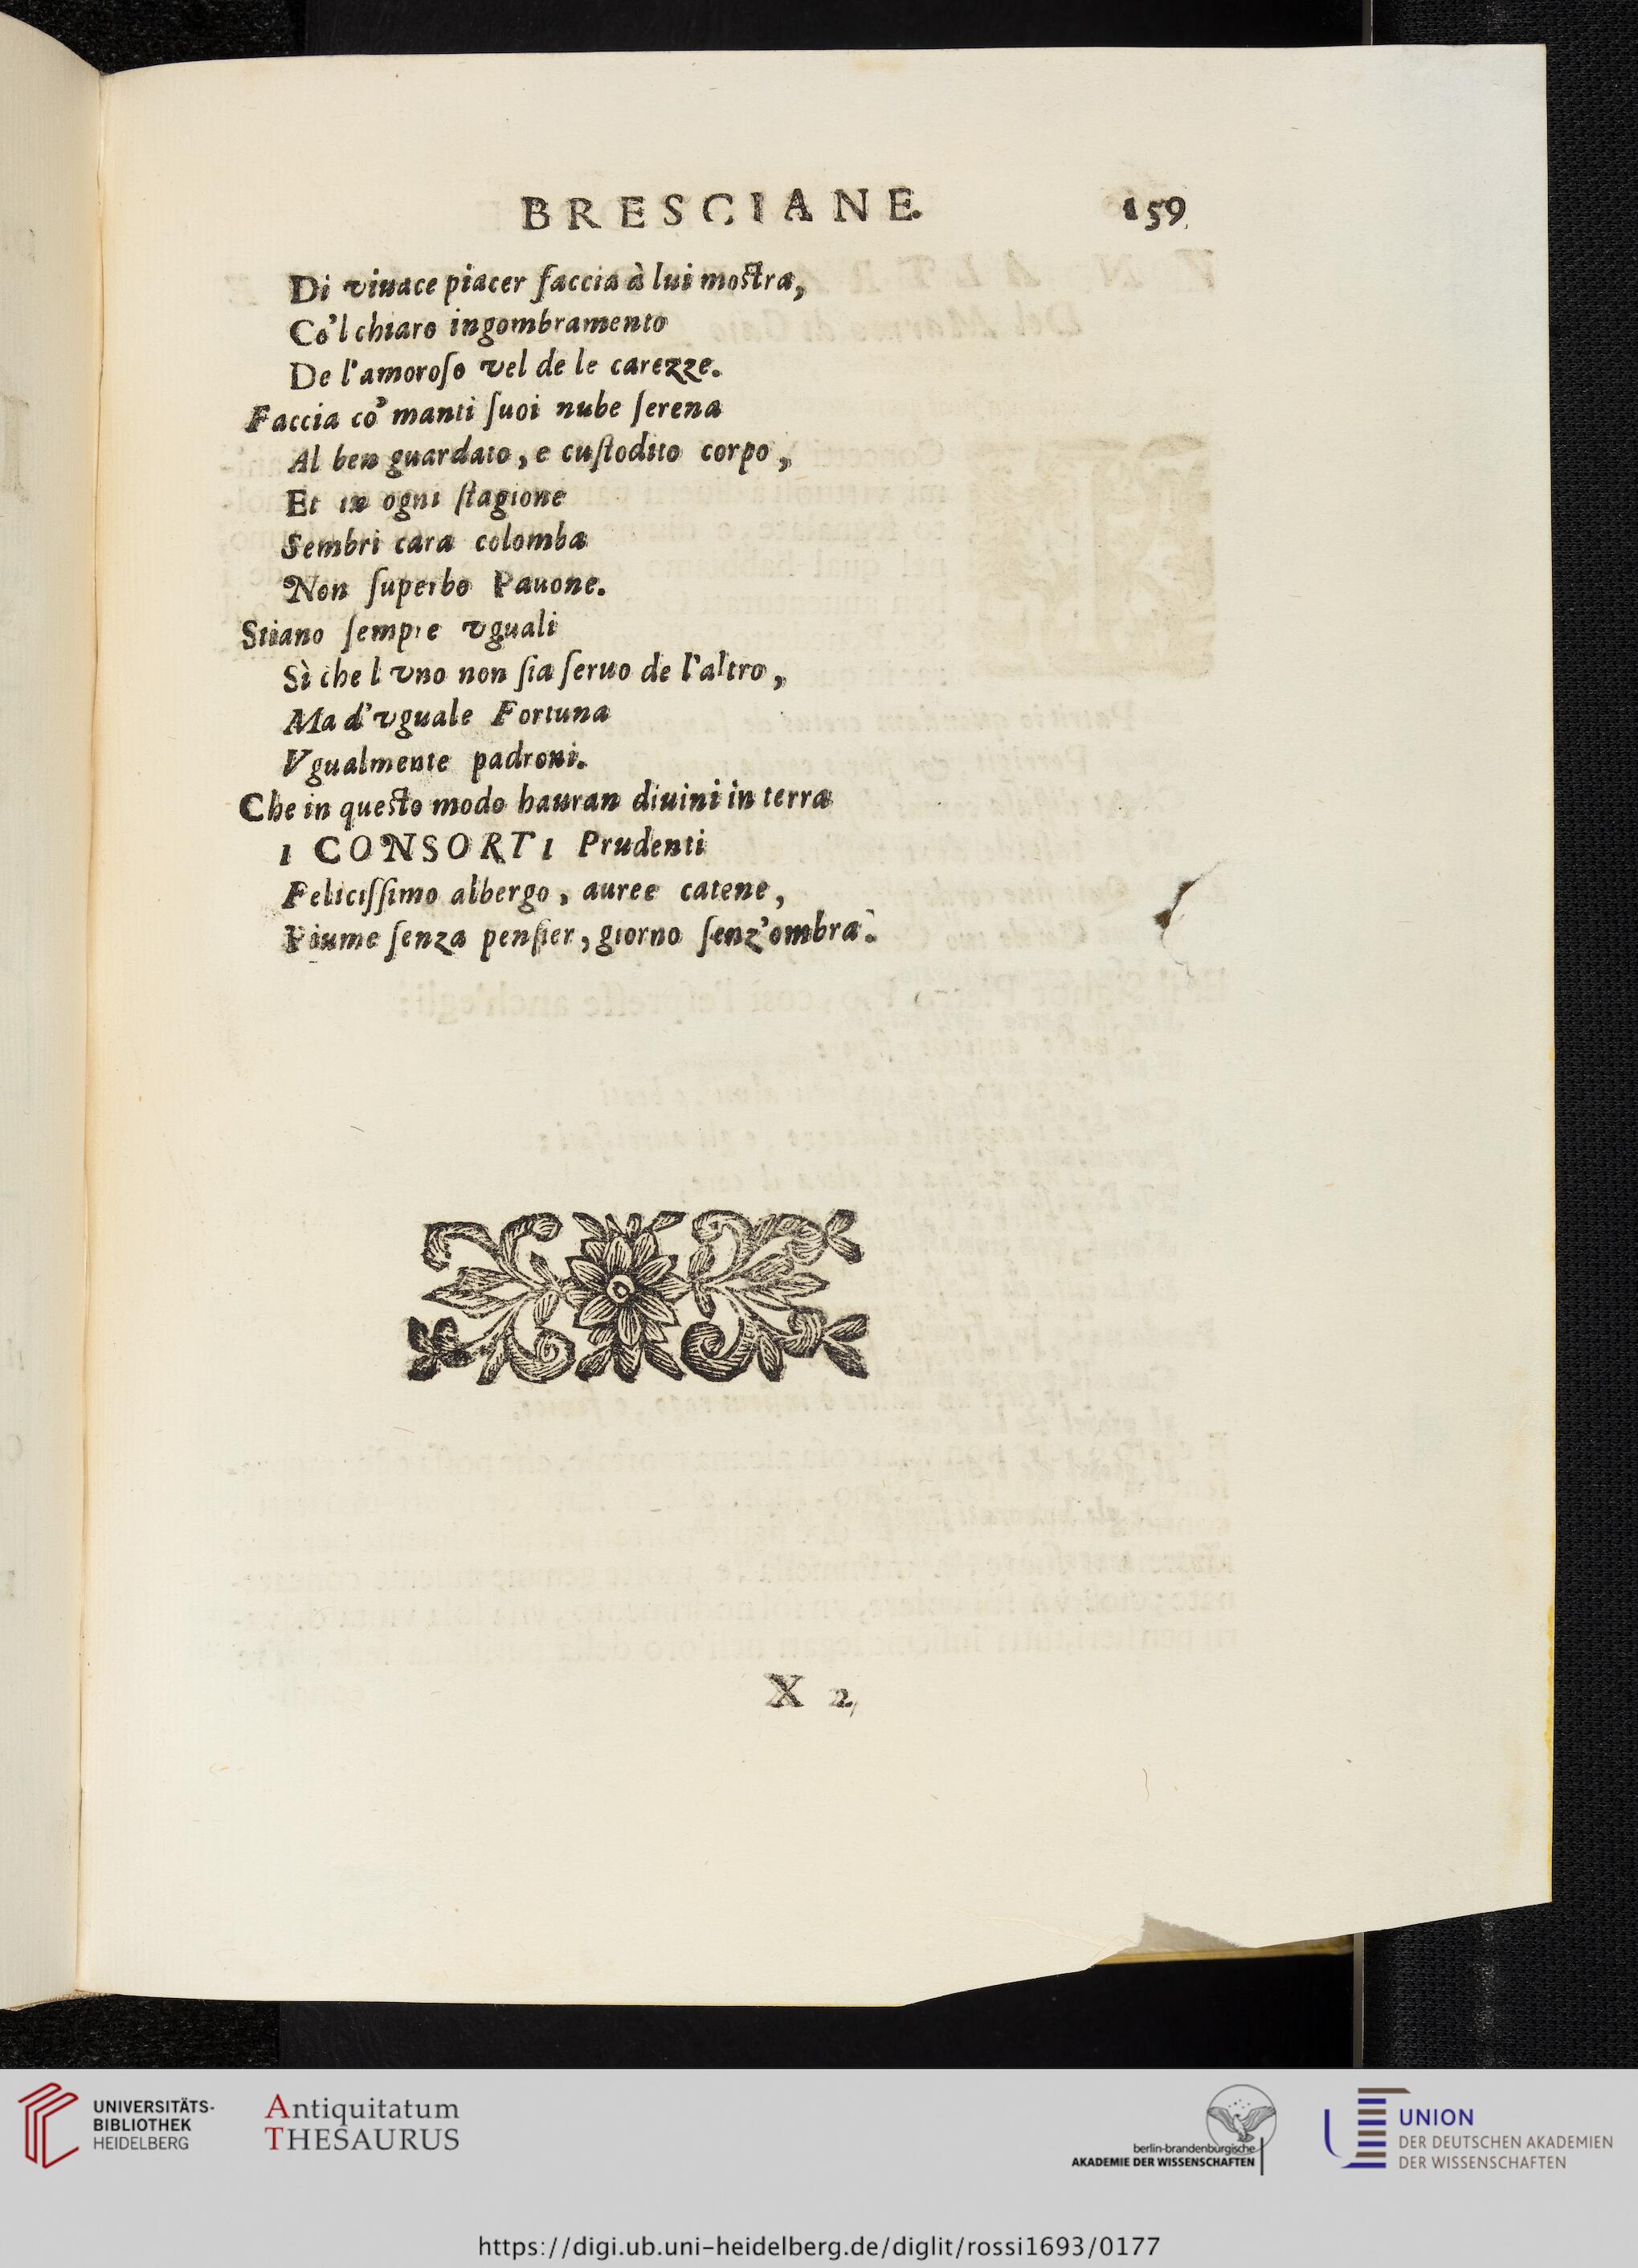 BRESCIANE. 159
Di viuace piacer faccia à lui mostra,
Co'l chiaro ingombramento
De l'amoroſo vel de le carezze.
Faccia co' manti ſuoi nube ſerena
Al ben guardato, e cuſtodito corpo,
Et in ogni ſtagione
Sembri cara colomba
Non ſuperbo Pauone.
Stiano ſempre vguali
Sì che l vno non ſia ſeruo de l'altro,
Ma d'vguale Fortuna
Vgualmente padroni.
Che in questo modo hauran diuini in terra
I CONSORTI Prudenti
Feliciſſimo albergo, auree catene,
Piume ſenza penſier, giorno ſenz'ombra.
X 2
UNIVERSITÄTS-
BIBLIOTHEK
HEIDELBERG
Antiquitatum
THESAURUS
berlin-brandenburgische
AKADEMIE DER WISSENSCHAFTEN
UNION
DER DEUTSCHEN AKADEMIEN
DER WISSENSCHAFTEN
https://digi.ub.uni-heidelberg.de/diglit/rossi1693/0177